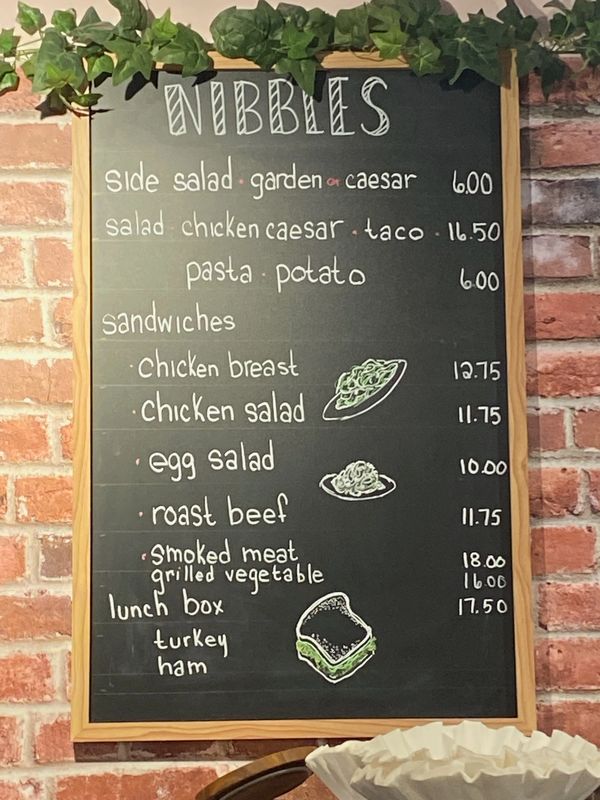 NIBBLES
side salad · garden or caesar 6.00
salad · chicken caesar · taco · 16.50
pasta · potato 6.00
sandwiches
· chicken breast 12.75
· chicken salad 11.75
· egg salad 10.00
· roast beef 11.75
· smoked meat 18.00
grilled vegetable 16.00
lunch box 17.50
turkey
ham